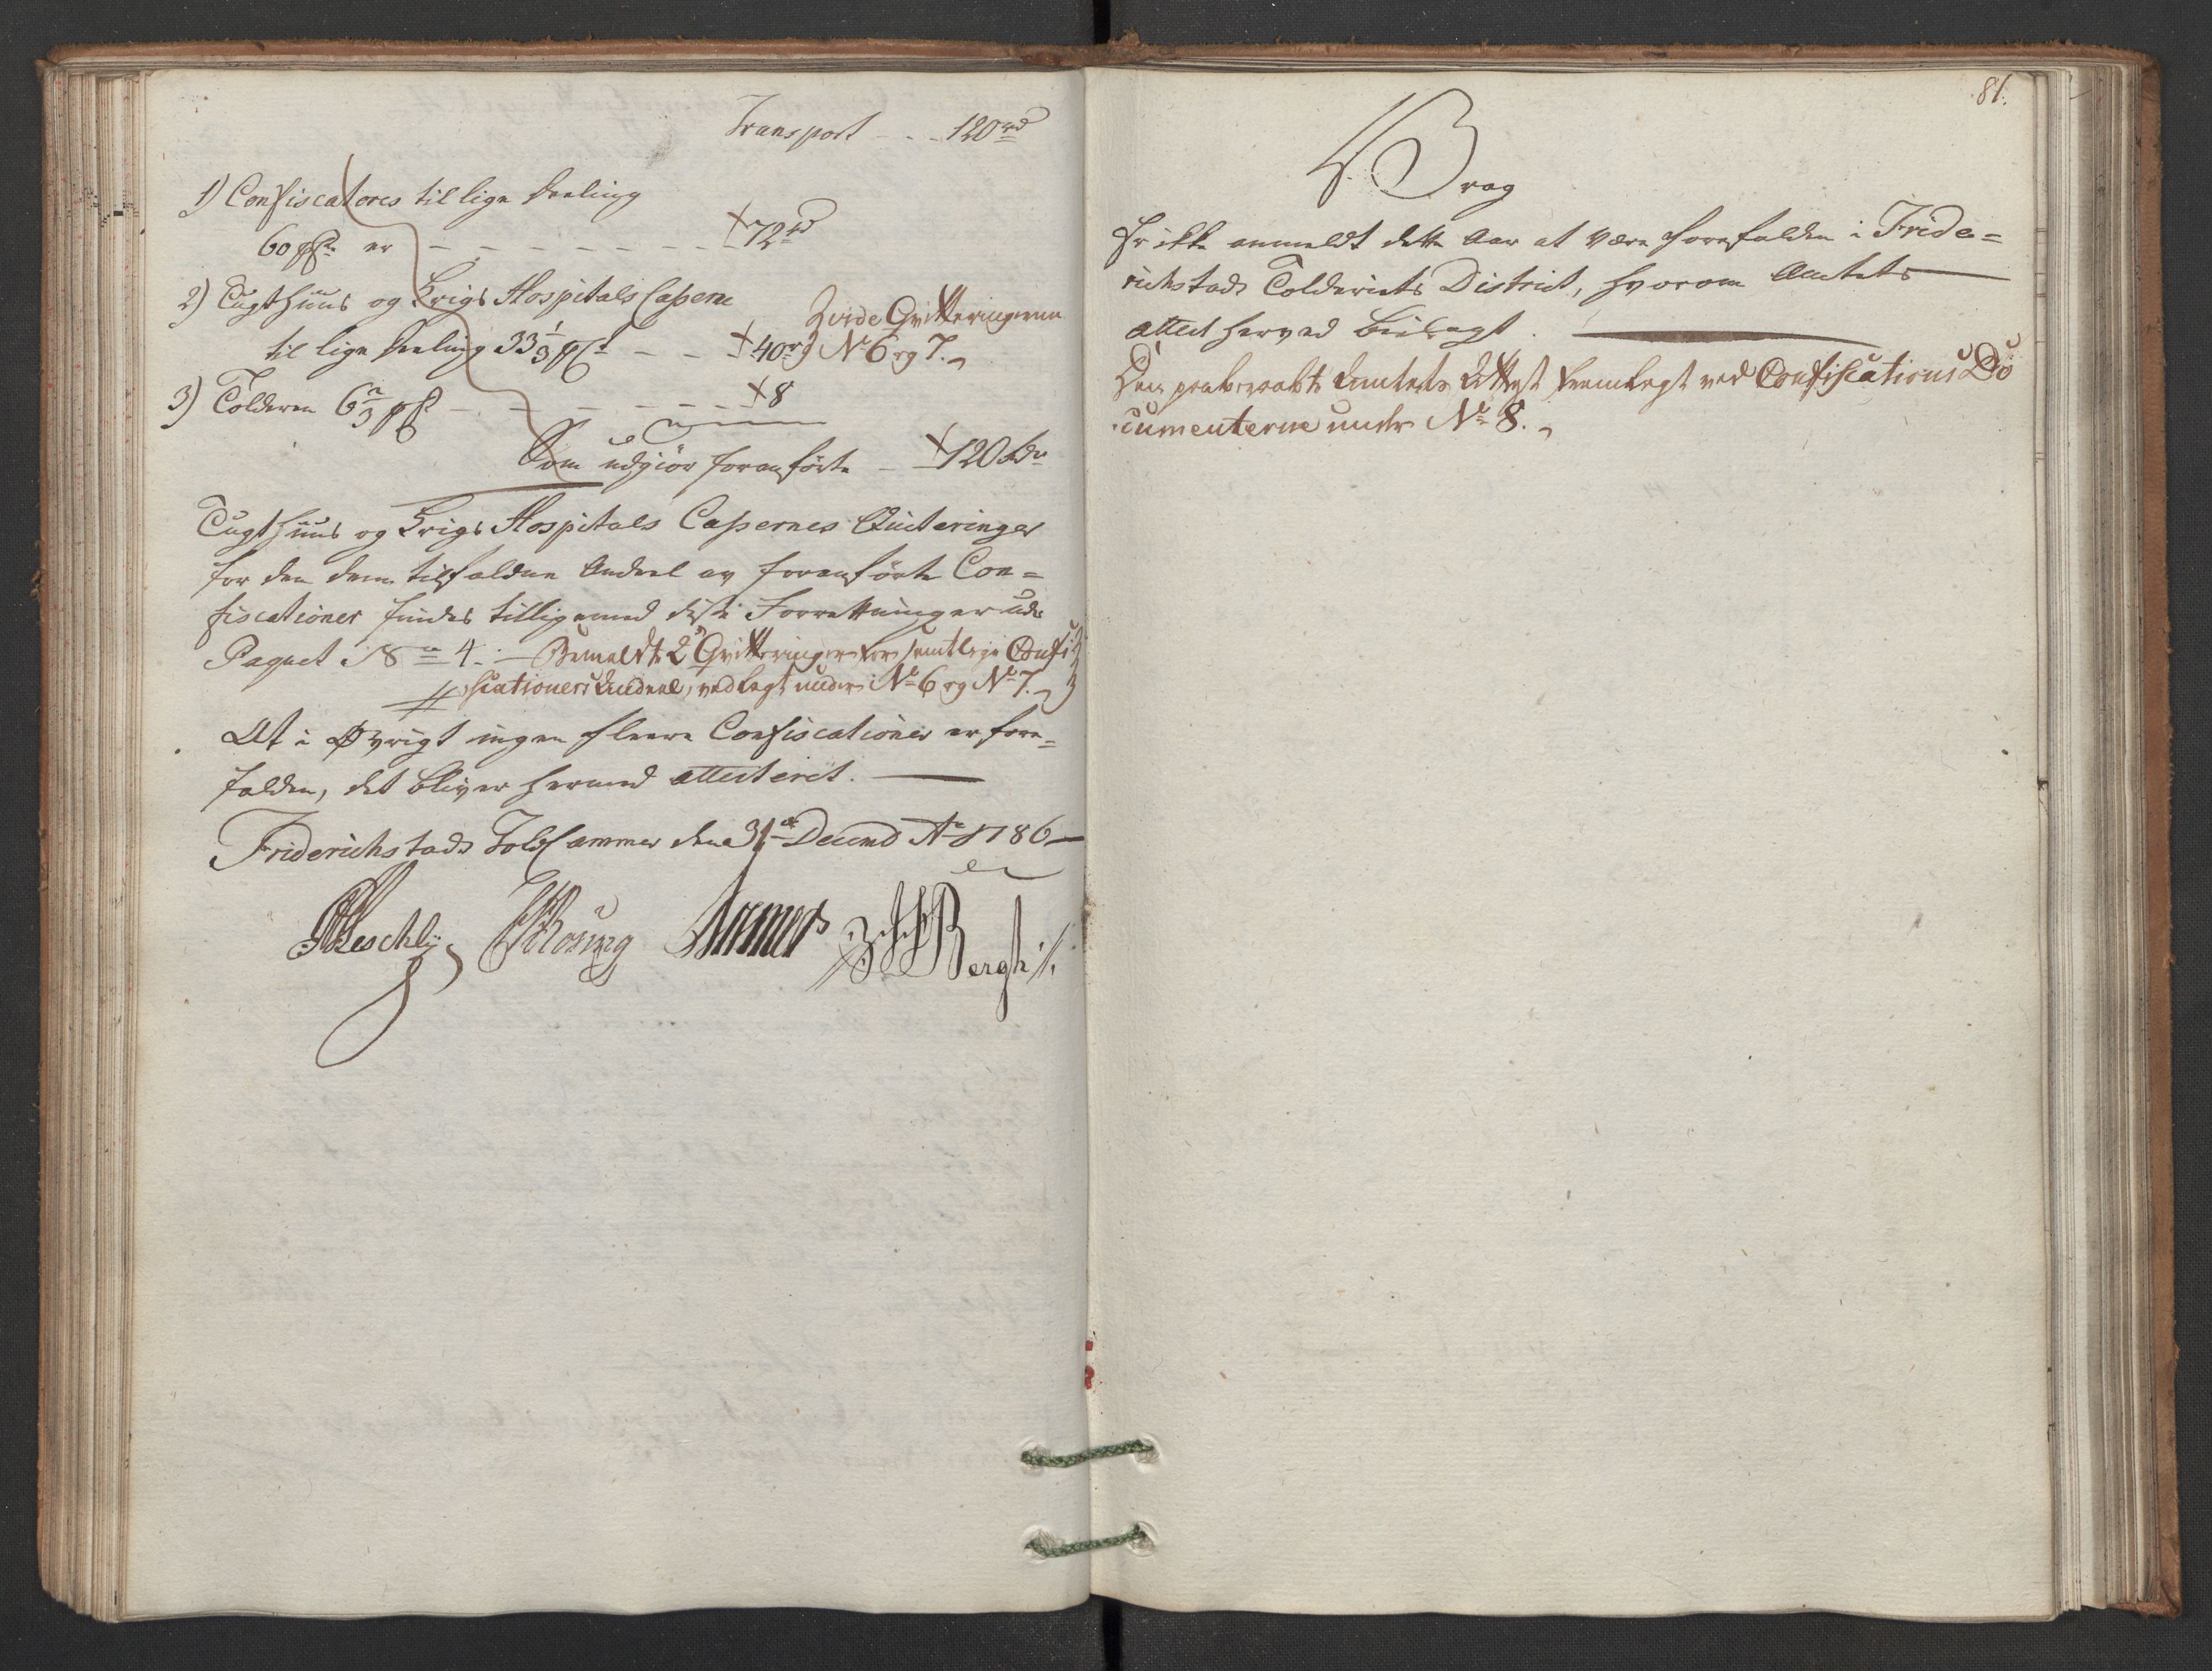 Transport - - - 120 rd
1) Confiscatores til lige Deeling
60 pCt. er - - - - - - - - 72 rd
2) Tugthuus og Krigs Hospitals Casserne
til lige Deeling 33 1/3 pCt. - - - 40 rd
vide Qvitteringerne
No 6 og 7.
3) Tolderen 6 2/3 pCt - - - - - - - 8
Som udgiør foranførte - 120 Rdr
Tugthuus og Krigs Hospitals Cassernes Quiteringer
for den dem tilfaldne Andeel av foranførte Con=
fiscationer findes tilligemed disse Forretninger udi
Paquet No 4. - Bemeldte 2de Qvitteringer for samtlige Confi
scationers Andeel, vedlagt under No 6 og No 7.
At i Øvrigt ingen fleere Confiscationer er fore=
falden, det bliver hermed attesteret.
Friderichstads Toldkammer den 31te Decemb Ao 1786
Rosing
Bergh
81.
Vrag
Er ikke anmeldt dette Aar at være forefalden i Fride=
richstads Tolderiets District, hvorom Amtets
attest herved Beilagt.
Den paaberaabte Amtets Attest fremlagt ved Confiscations Do
cumenterne under No 8.